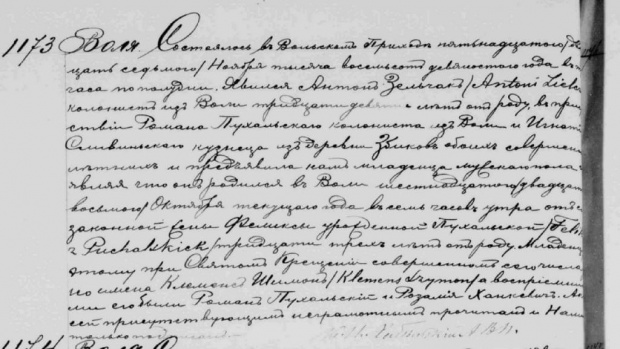 1173 Воля Состоялось въ Вольскомъ Приходѣ пятьнадцатого/два
цать седьмого/Ноября тысяча восемьсотъ девяностого года въ
часа по полудни. Явился Антонъ Зельчакъ/Antoni
колонистъ изъ Воли тридцати девяти лѣтъ отъ роду, въ при
ствіи Романа Пухальского колониста изъ Воли и
кузнеца изъ деревни обоихъ соверше
лѣтнихъ и предъявилъ намъ младенца мужеского пола
являя что онъ родился въ Воли шестнадцатого/двадца
восьмого/Октября текущего года въ семь часовъ утра отъ
законной жены Феликсы урожденной Пухальской/Feli
z Puchalskich/тридцати трехъ лѣтъ отъ роду. Младен
этому при Святомъ Крещеніи совершенномъ сего числа
но имена Клеменсъ Шимонъ/Klemens Szymon/а воспріемни
ми его были Романъ Пухальскій и Розалія Янкевичъ. А
сей присутствующимъ неграмотнымъ прочитанъ и Нами
только
1174 Воля